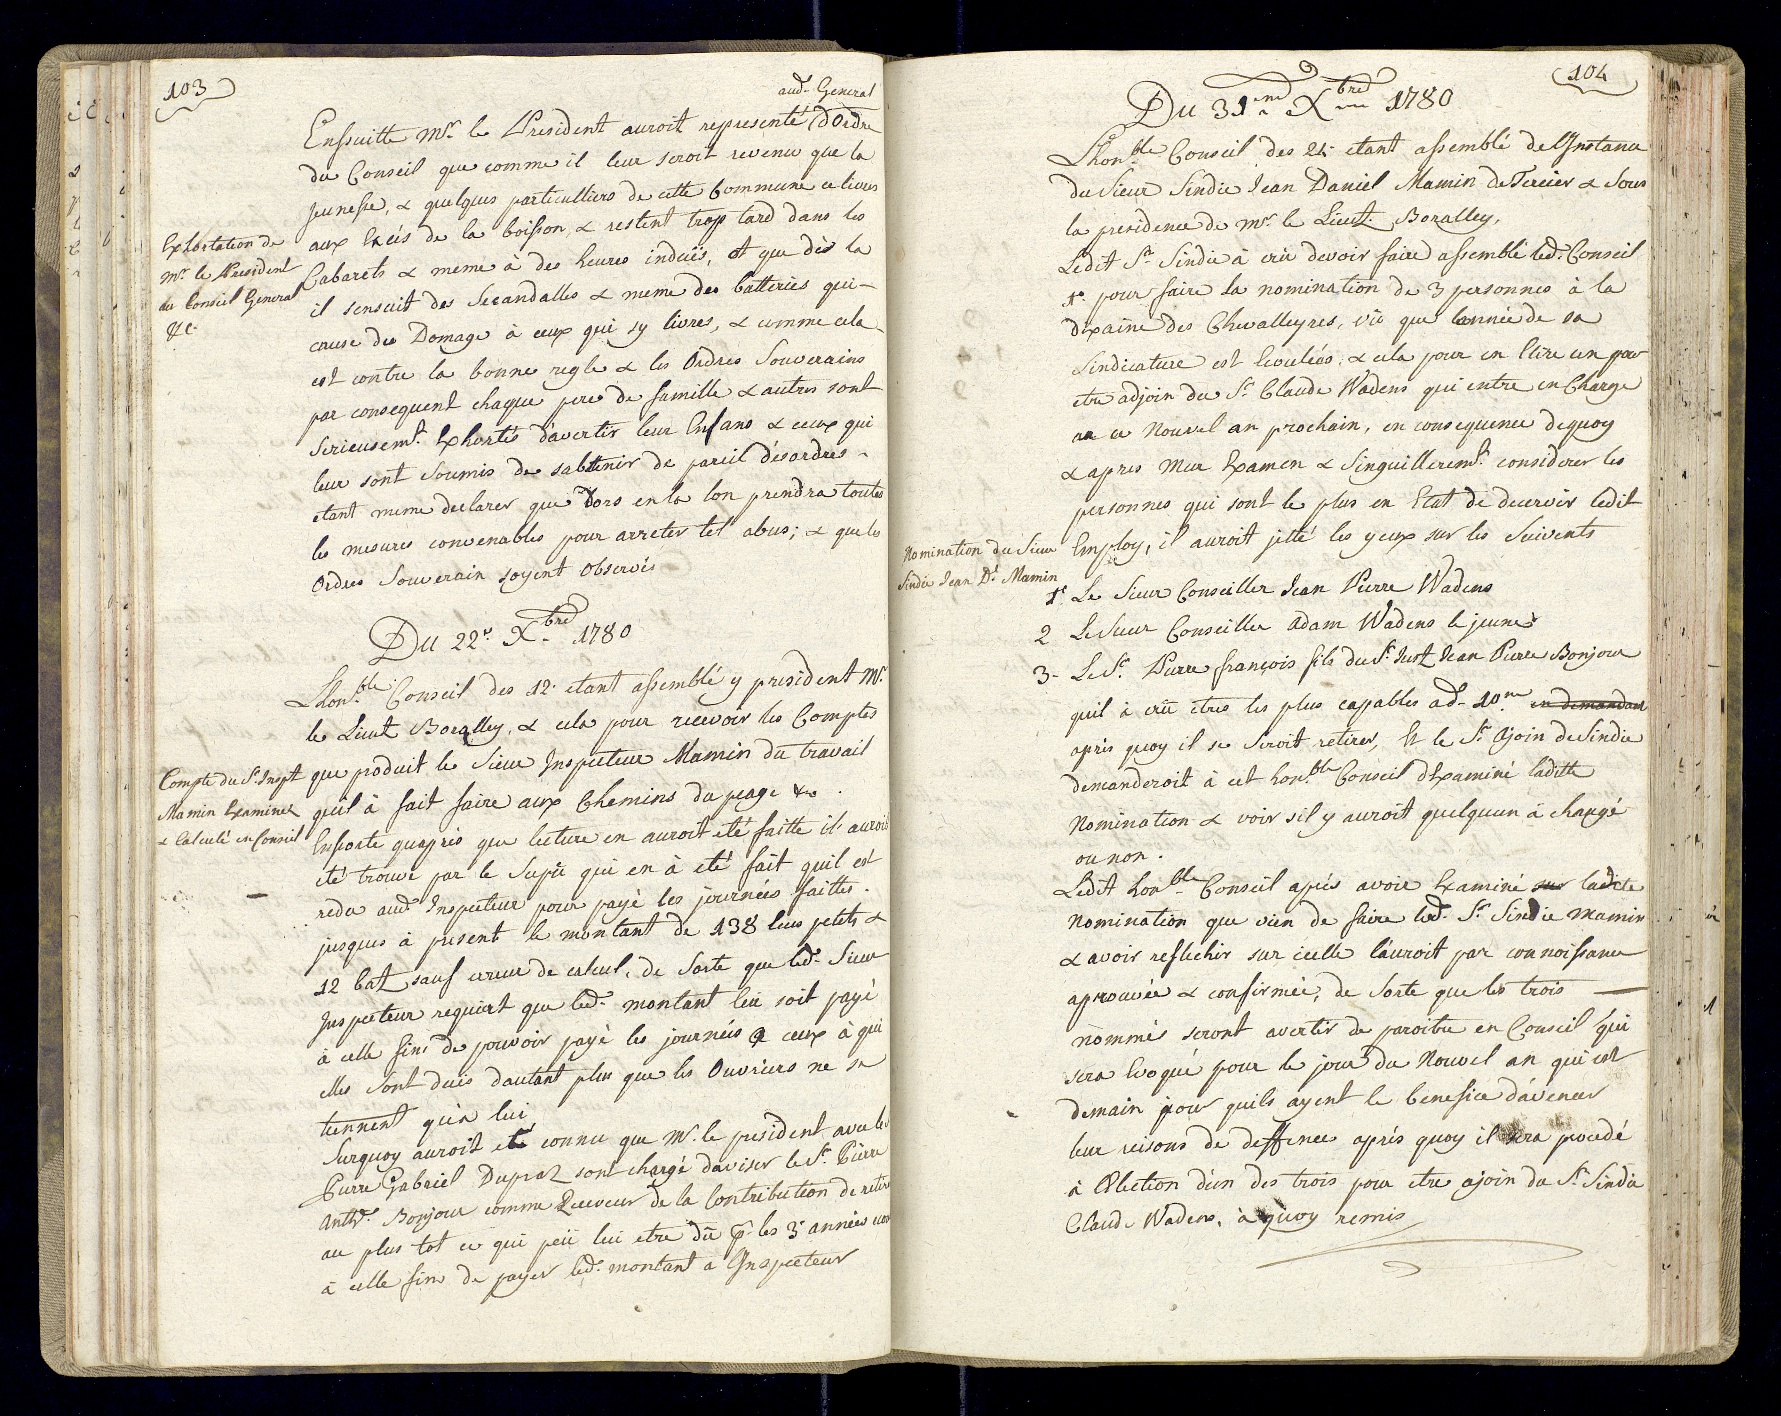 103
aud. General
Ensuitte Mr. le President auroit representé d'Ordre
du Conseil que comme il leur seroit revenu que la
Jeunesse, & quelques particulliers de cette Commune se livres
aux Excés de la boisson, & restent trop tard dans les
Cabarets & meme à des heures induës, et que dès la
il sensuit des Secandalles & meme des batteries qui
cause des Domage à ceux qui sy livres, & comme cela
est contre la bonne regle & les Ordres Souverains
par consequent chaque pere de famille & autres sont
Serieusemt. Exhortés davertir leur Enfans & ceux qui
leur sont Soumis de sabstenir de pareil désordres
etant meme declarer que dors en la lon prendra toutes
les mesures convenables pour arreter tel abus; & que les
Ordres Souverain soyent Observés
Exhortation de
Mr. le President
au Conseil General
&c.
Du 22e. Xbre 1780
Lhonble. Conseil des 12. etant assemblé y president Mr.
le Lieut Boralley, & cela pour recevoir les Comptes
que produit le Sieur Inspecteur Mamin du travail
qu'il à fait faire aux Chemins du peage &c.
Ensorte quaprés que lecture en auroit eté faitte il auroit
été trouvé par le Suplu qui en à eté fait quil est
redu aud. Inspecteur pour payé les journées faittes
jusques à present le montant de 138 leus petits &
12 bat sauf erreur de calcul, de Sorte que led. Sieur
Inspecteur requiert que led. montant lui soit payé
à celle fins de pouvoir payé les journées a ceux à qui
elles sont dues dautant plus que les Ouvriers ne se
tiennent qu'a lui
Surquoy auroit eté connu que Mr. le president avec le
Pierre Gabriel Dupraz sont chargé daviser le Sr. Pierre
Anthe. Bonjour comme Receveur de la Contribution de retirer
au plus tot ce qui peu lui etre du pr. les 3 années
à celle fins de payer led. montant a Inspecteur
Compte du Sr. Inspt
Mamin Examinez
& Calculé en Conseil
104
Du 31me Xbre 1780
Lhonble Conseil des 24. etant assemblé de l'Instance
du Sieur Sindic Jean Daniel Mamin de Tercier & Sous
la presidence de Mr. le Lieut Boralley,
Ledit Sr. Sindic à crû devoir faire assemblé led. Conseil
1o. pour faire la nomination de 3 personnes à la
dixaine des Chevalleyres, vû que lannée de sa
Sindicature est Ecoulées, & cela pour en Elire un pour
etre adjoin du Sr. Claude Wadens qui entre en Charge
au ce Nouvel an prochain, en consequence dequoy
& apres Mur Examen & Singuilleremt. considerer les
personnes qui sont le plus en Etat de decervir ledit
Employ, il auroit jetté les yeux sur les Suivents
Nomination du Sieur
Sindic Jean Dl Mamin
1o. Le Sieur Conseiller Jean Pierre Wadens
2 Le Sieur Conseiller Adam Wadens le jeune
3. Le Sr. Pierre françois fils du Sr. Just Jean Pierre Bonjour
quil à crû etres les plus capables ad. 10me en demandant
aprés quoy il se Seroit retirer, Et le Sr. Ajoin de Sindic
demanderoit à cet honble. Conseil dExaminé laditte
Nomination & voir sil y auroit quelquun à changé
ou non.
Ledit honble Conseil aprés avoir Examiné sur laditte
nomination que vien de faire led. Sr. Sindic Mamin
& avoir reflechir sur icelle lauroit par connoissance
aprouvée & confirmée, de Sorte que les trois
nommés seront avertir de paroitre en Conseil qui
sera Evoqué pour le jour du Nouvel an qui est
demain pour quils ayent le benefice d'avencer
leur reisons de deffences aprés quoy il sera procedé
à Election d'un des trois pour etre ajoin du Sr. Sindic
Claude Wadens, à quoy remis